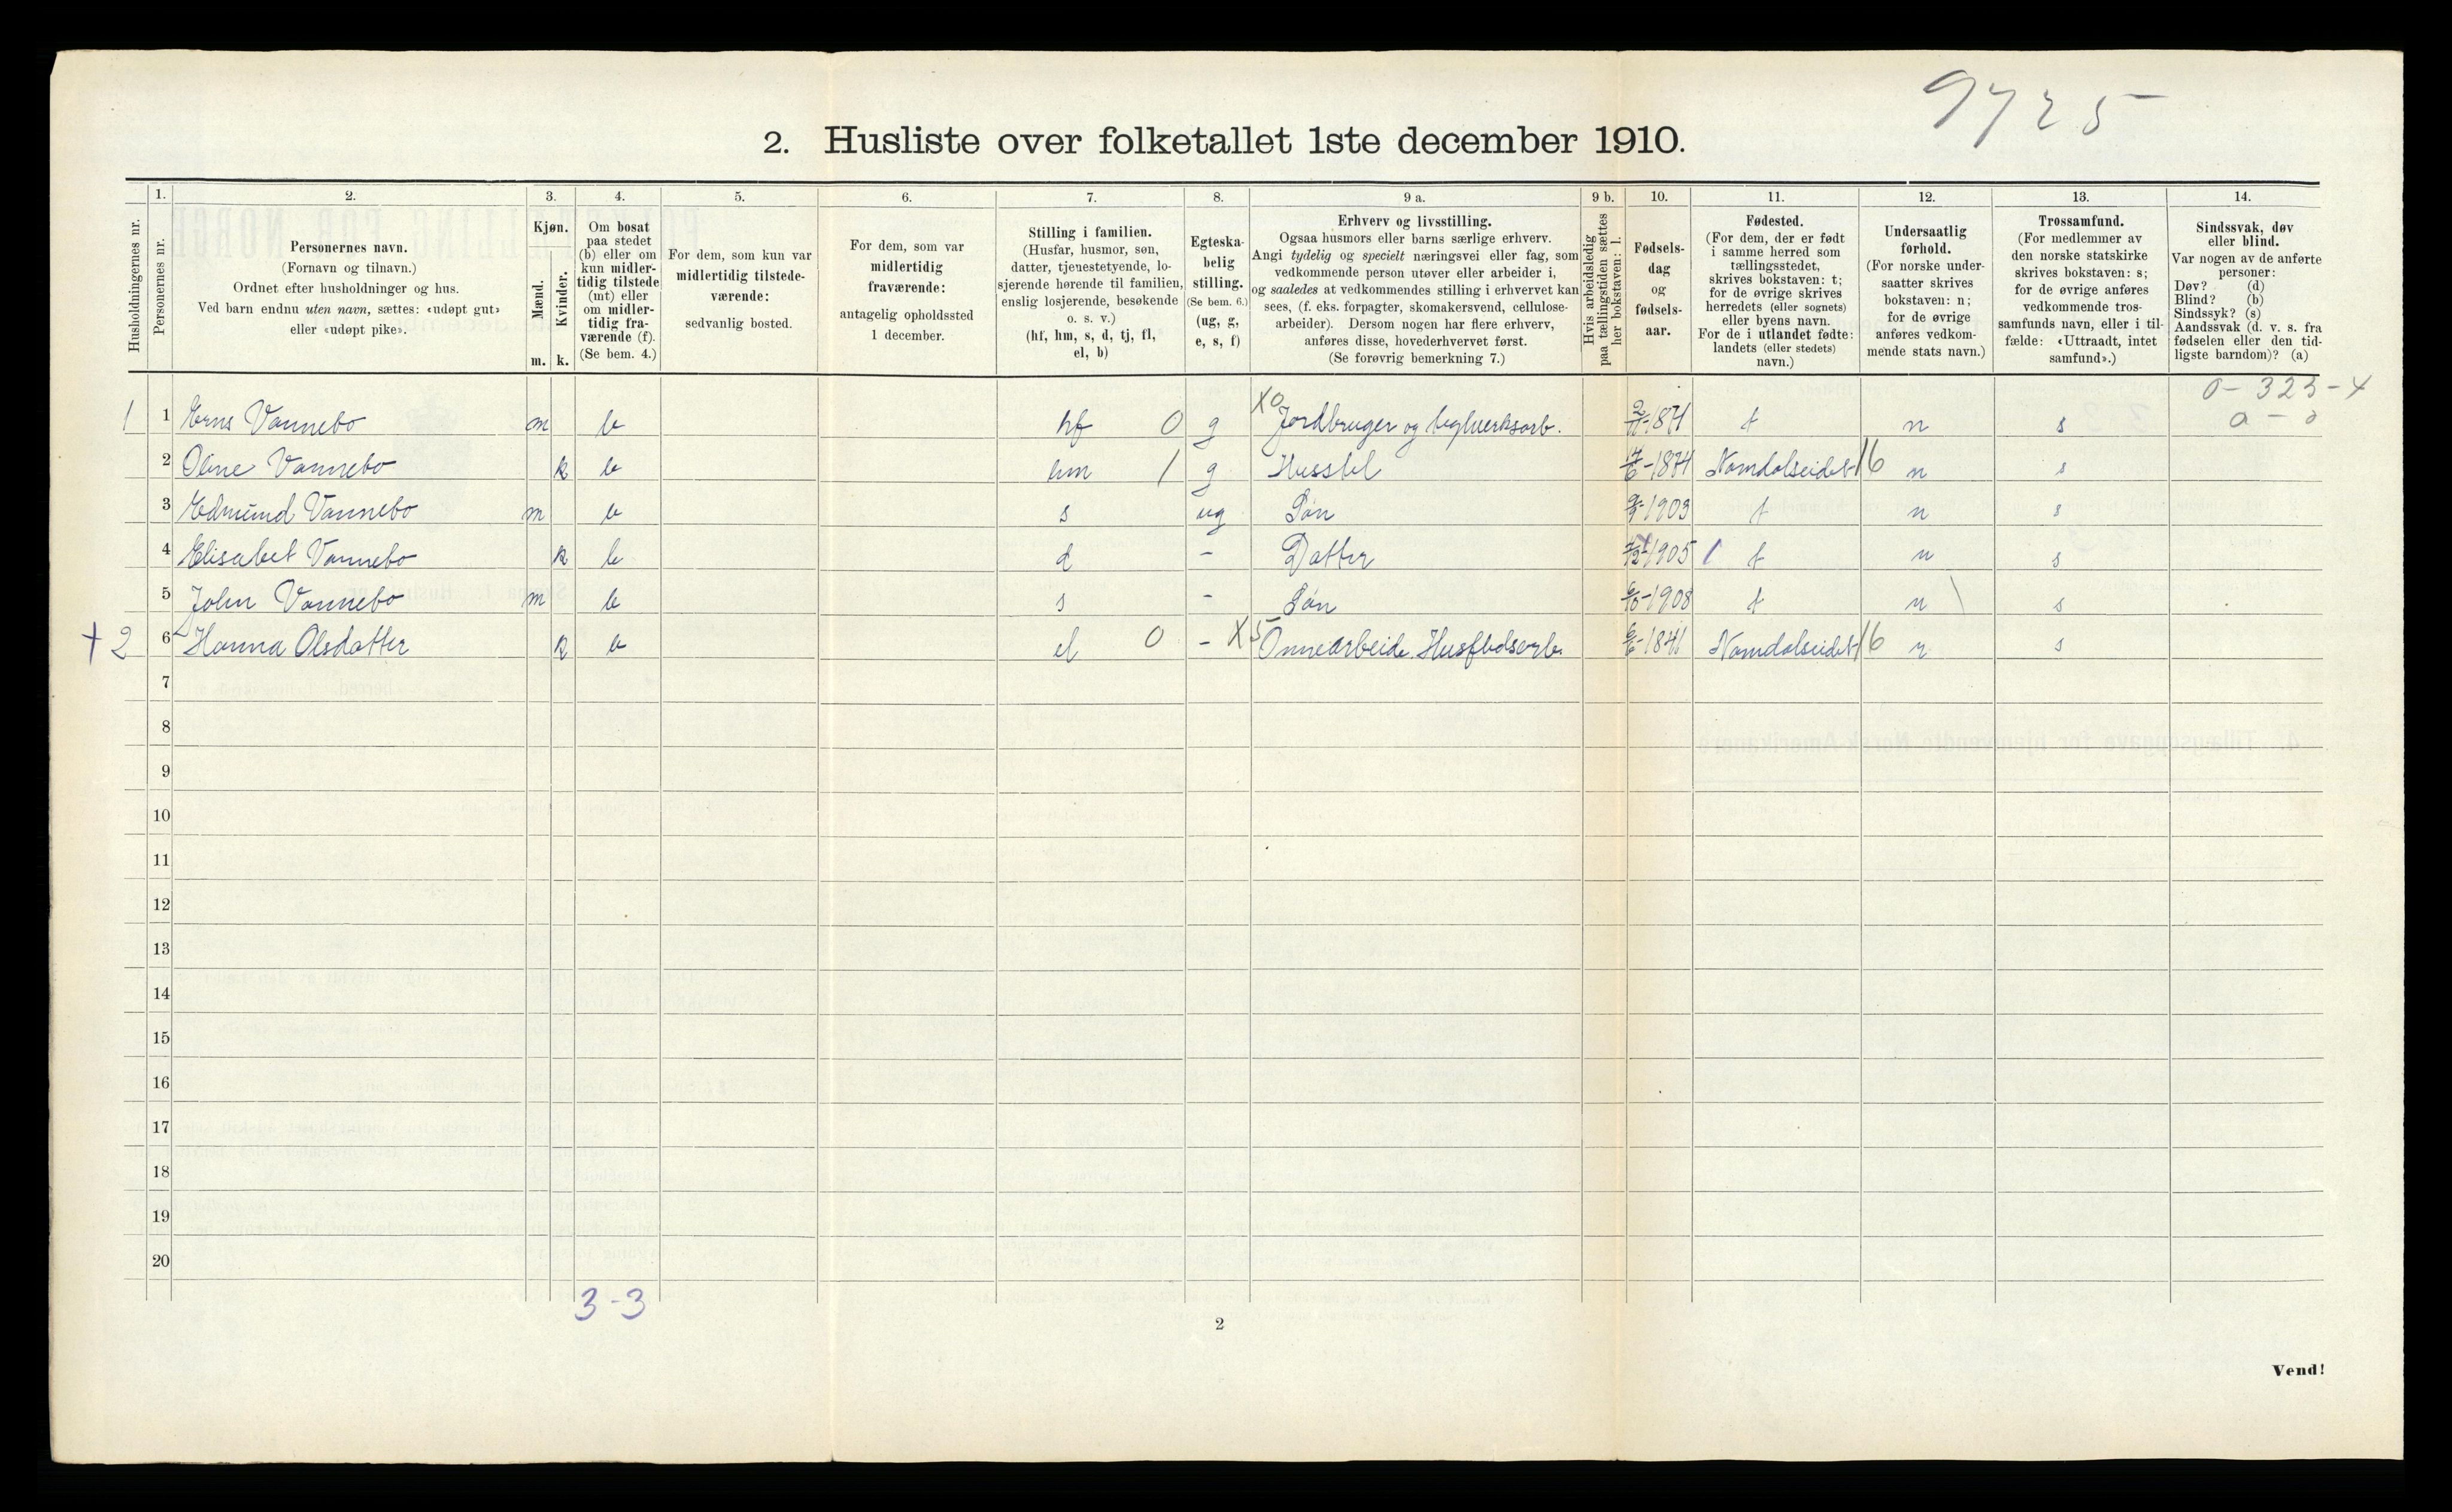 9725
2. Husliste over folketallet 1ste december 1910.
Husholdningernes nr.
1.
Personernes nr.
2.
Personernes navn.
(Fornavn og tilnavn.)
Ordnet efter husholdninger og hus.
Ved barn endnu uten navn, sættes: «udøpt gut»
eller «udøpt pike».
3.
Kjøn.
Mænd.
Kvinder.
m. k.
4.
Om bosat
paa stedet
(b) eller om
kun midler-
tidig tilstede
(mt) eller
om midler-
tidig fra-
værende (f).
(Se bem. 4.)
5.
For dem, som kun var
midlertidig tilstede-
værende:
sedvanlig bosted.
6.
For dem, som var
midlertidig
fraværende:
antagelig opholdssted
1 december.
7.
Stilling i familien.
(Husfar, husmor, søn,
datter, tjenestetyende, lo-
sjerende hørende til familien,
enslig losjerende, besøkende
o. s. v.)
(hf, hm, s, d, tj, fl,
el, b)
8.
Egteska-
belig
stilling.
(Se bem. 6.)
(ug, g,
e, s, f)
9 a.
Erhverv og livsstilling.
Ogsaa husmors eller barns særlige erhverv.
Angi tydelig og specielt næringsvei eller fag, som
vedkommende person utøver eller arbeider i,
og saaledes at vedkommendes stilling i erhvervet kan
sees, (f. eks. forpagter, skomakersvend, cellulose-
arbeider). Dersom nogen har flere erhverv,
anføres disse, hovederhvervet først.
(Se forøvrig bemerkning 7.)
9 b.
Hvis arbeidsledig
paa tællingstiden sættes
her bokstaven: l.
10.
Fødsels-
dag
og
fødsels-
aar.
11.
Fødested.
(For dem, der er født
i samme herred som
tællingsstedet,
skrives bokstaven: t;
for de øvrige skrives
herredets (eller sognets)
eller byens navn.
For de i utlandet fødte:
landets (eller stedets)
navn.)
12.
Undersaatlig
forhold.
(For norske under-
saatter skrives
bokstaven: n;
for de øvrige
anføres vedkom-
mende stats navn.)
13.
Trossamfund.
(For medlemmer av
den norske statskirke
skrives bokstaven: s;
for de øvrige anføres
vedkommende tros-
samfunds navn, eller i til-
fælde: «Uttraadt, intet
samfund».)
14.
Sindssvak, døv
eller blind.
Var nogen av de anførte
personer:
Døv? (d)
Blind? (b)
Sindssyk? (s)
Aandssvak (d. v. s. fra
fødselen eller den tid-
ligste barndom)? (a)
0-323-4
1 1 Erns Vannebo m b hf 0 g X0 Jordbruger og teglverksarb. 1871 t n s
2 Oline Vannebo k b hm 1 g Husstel 1874 Namdalseidet 16 n s
3 Edmund Vannebo m b s ug Søn 1903 t n s
4 Elisabet Vannebo k b d - Datter 1905 t n s
5 John Vannebo m b s - Søn 1908 t n s
+ 2 6 Hanna Olsdatter k b el 0 - X5 Onnearbeide. Husflidsarb. 1841 Namdalseidet 16 n s
7
8
9
10
11
12
13
14
15
16
17
18
19
20
3-3
2
Vend!